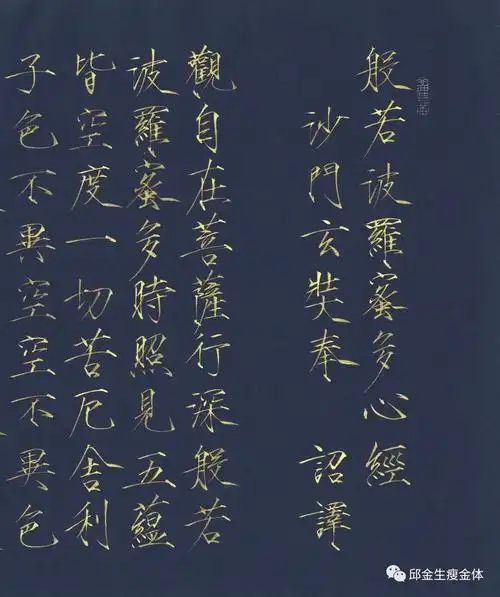 般若波羅蜜多心經
沙門玄奘奉 詔譯
觀自在菩薩行深般若
波羅蜜多時照見五蘊
皆空度一切苦厄舍利
子色不異空空不異色
邱金生瘦金体